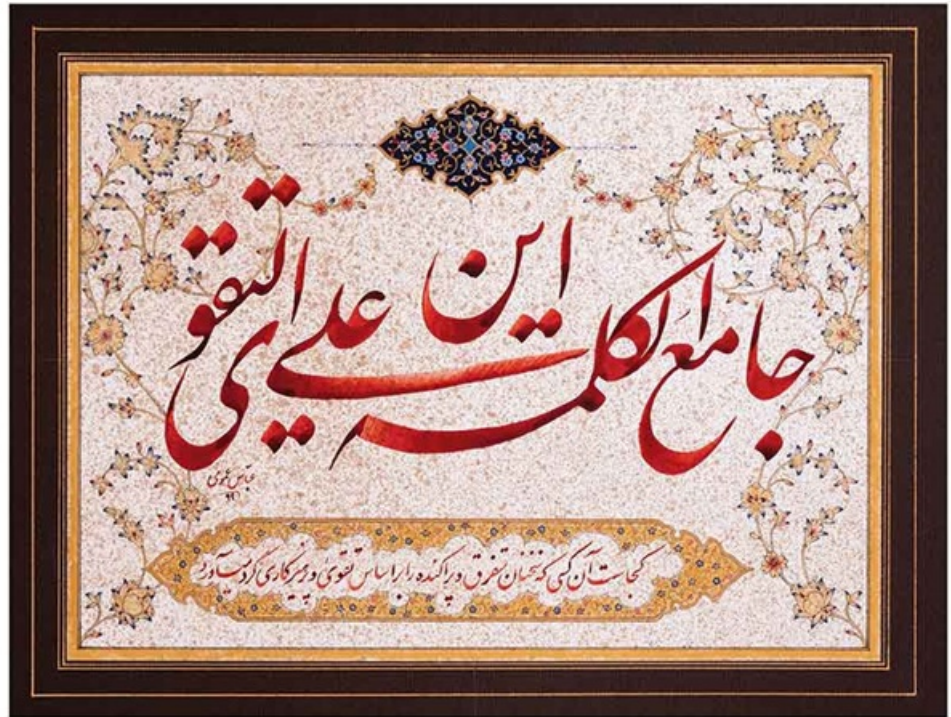 این جامع الکلمه علی التقوی
عباس
کجاست آن کسی که سخنان متفرق و پراکنده را بر اساس تقوی و پرهیزکاری گرد می آورد